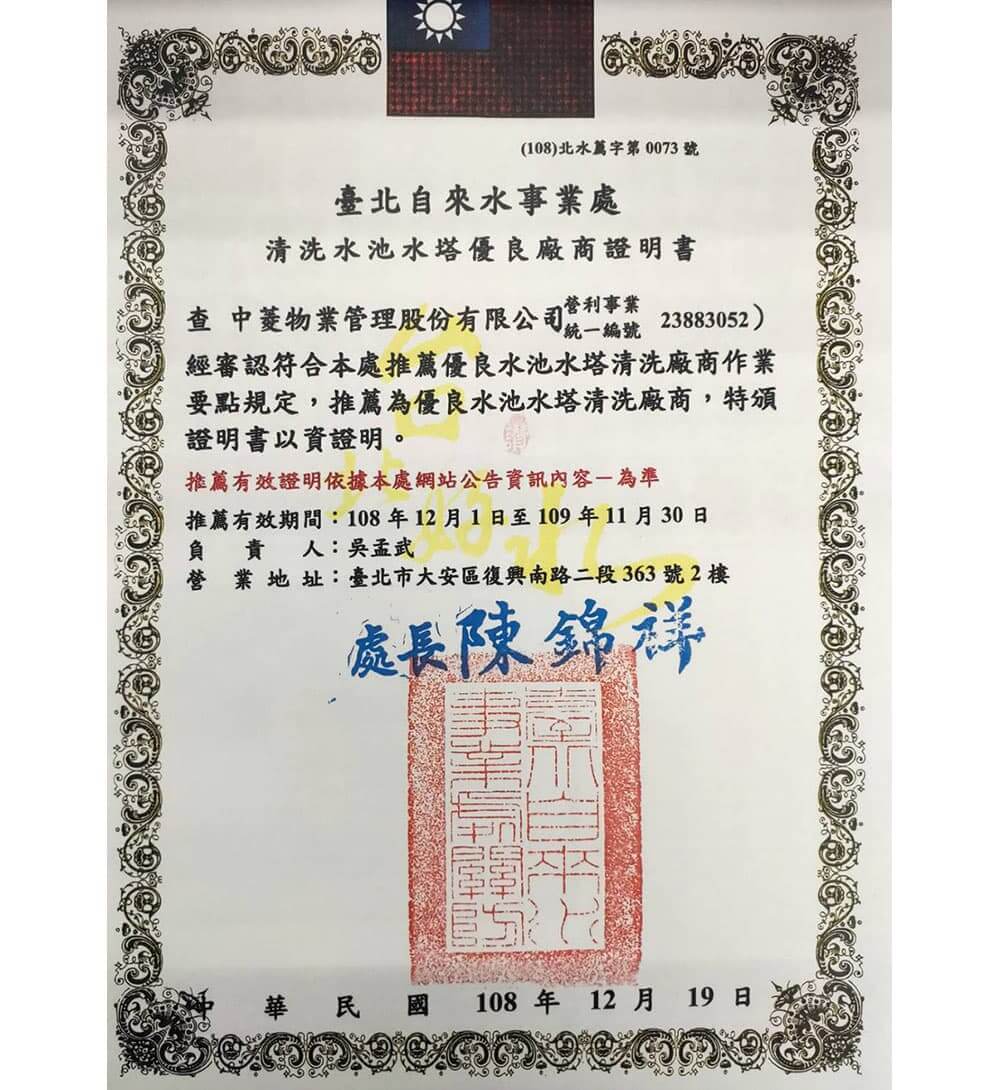 (108)北水薦字第 0073 號
臺北自來水事業處
清洗水池水塔優良廠商證明書
查 中菱物業管理股份有限公司營利事業統一編號 23883052）
經審認符合本處推薦優良水池水塔清洗廠商作業
要點規定，推薦為優良水池水塔清洗廠商，特頒
證明書以資證明。
推薦有效證明依據本處網站公告資訊內容－為準
推薦有效期間：108 年 12 月 1 日至 109 年 11 月 30 日
負 責 人：吳孟武
營 業 地 址：臺北市大安區復興南路二段 363 號 2 樓
台北好水
處長陳錦祥
臺北自來水
事業處關防
中 華 民 國 108 年 12 月 19 日